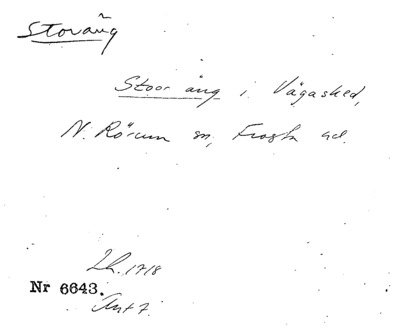 Storäng
Stoor äng i Vägasked,
N. Rörum sn, Frosta hd.
Lh. 1718
Nr 6643.
Ant 7.